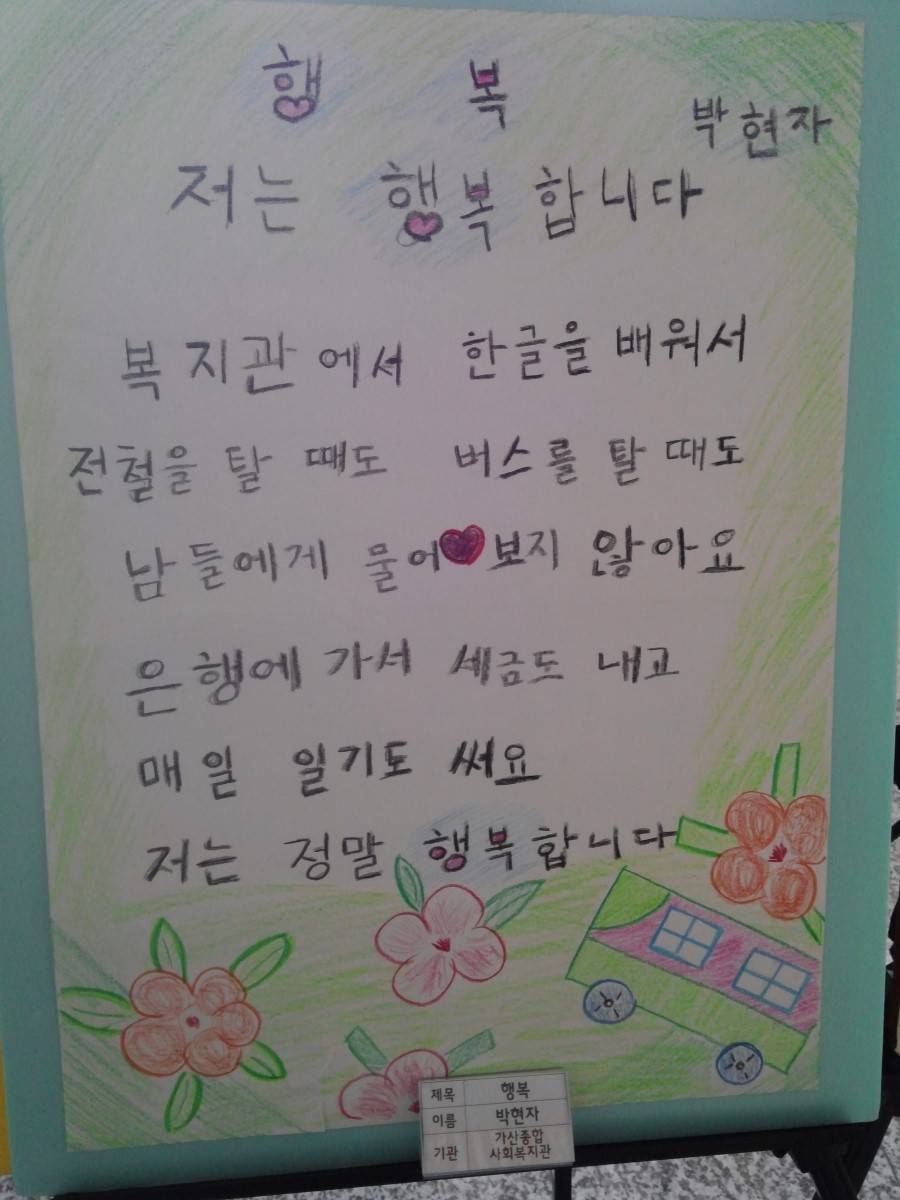 행 복
박현자
저는 행복합니다
복지관에서 한글을 배워서
전철을 탈 때도 버스를 탈 때도
남들에게 물어 보지 않아요
은행에 가서 세금도 내고
매일 일기도 써요
저는 정말 행복합니다
제목 행복
이름 박현자
기관 가산종합
사회복지관